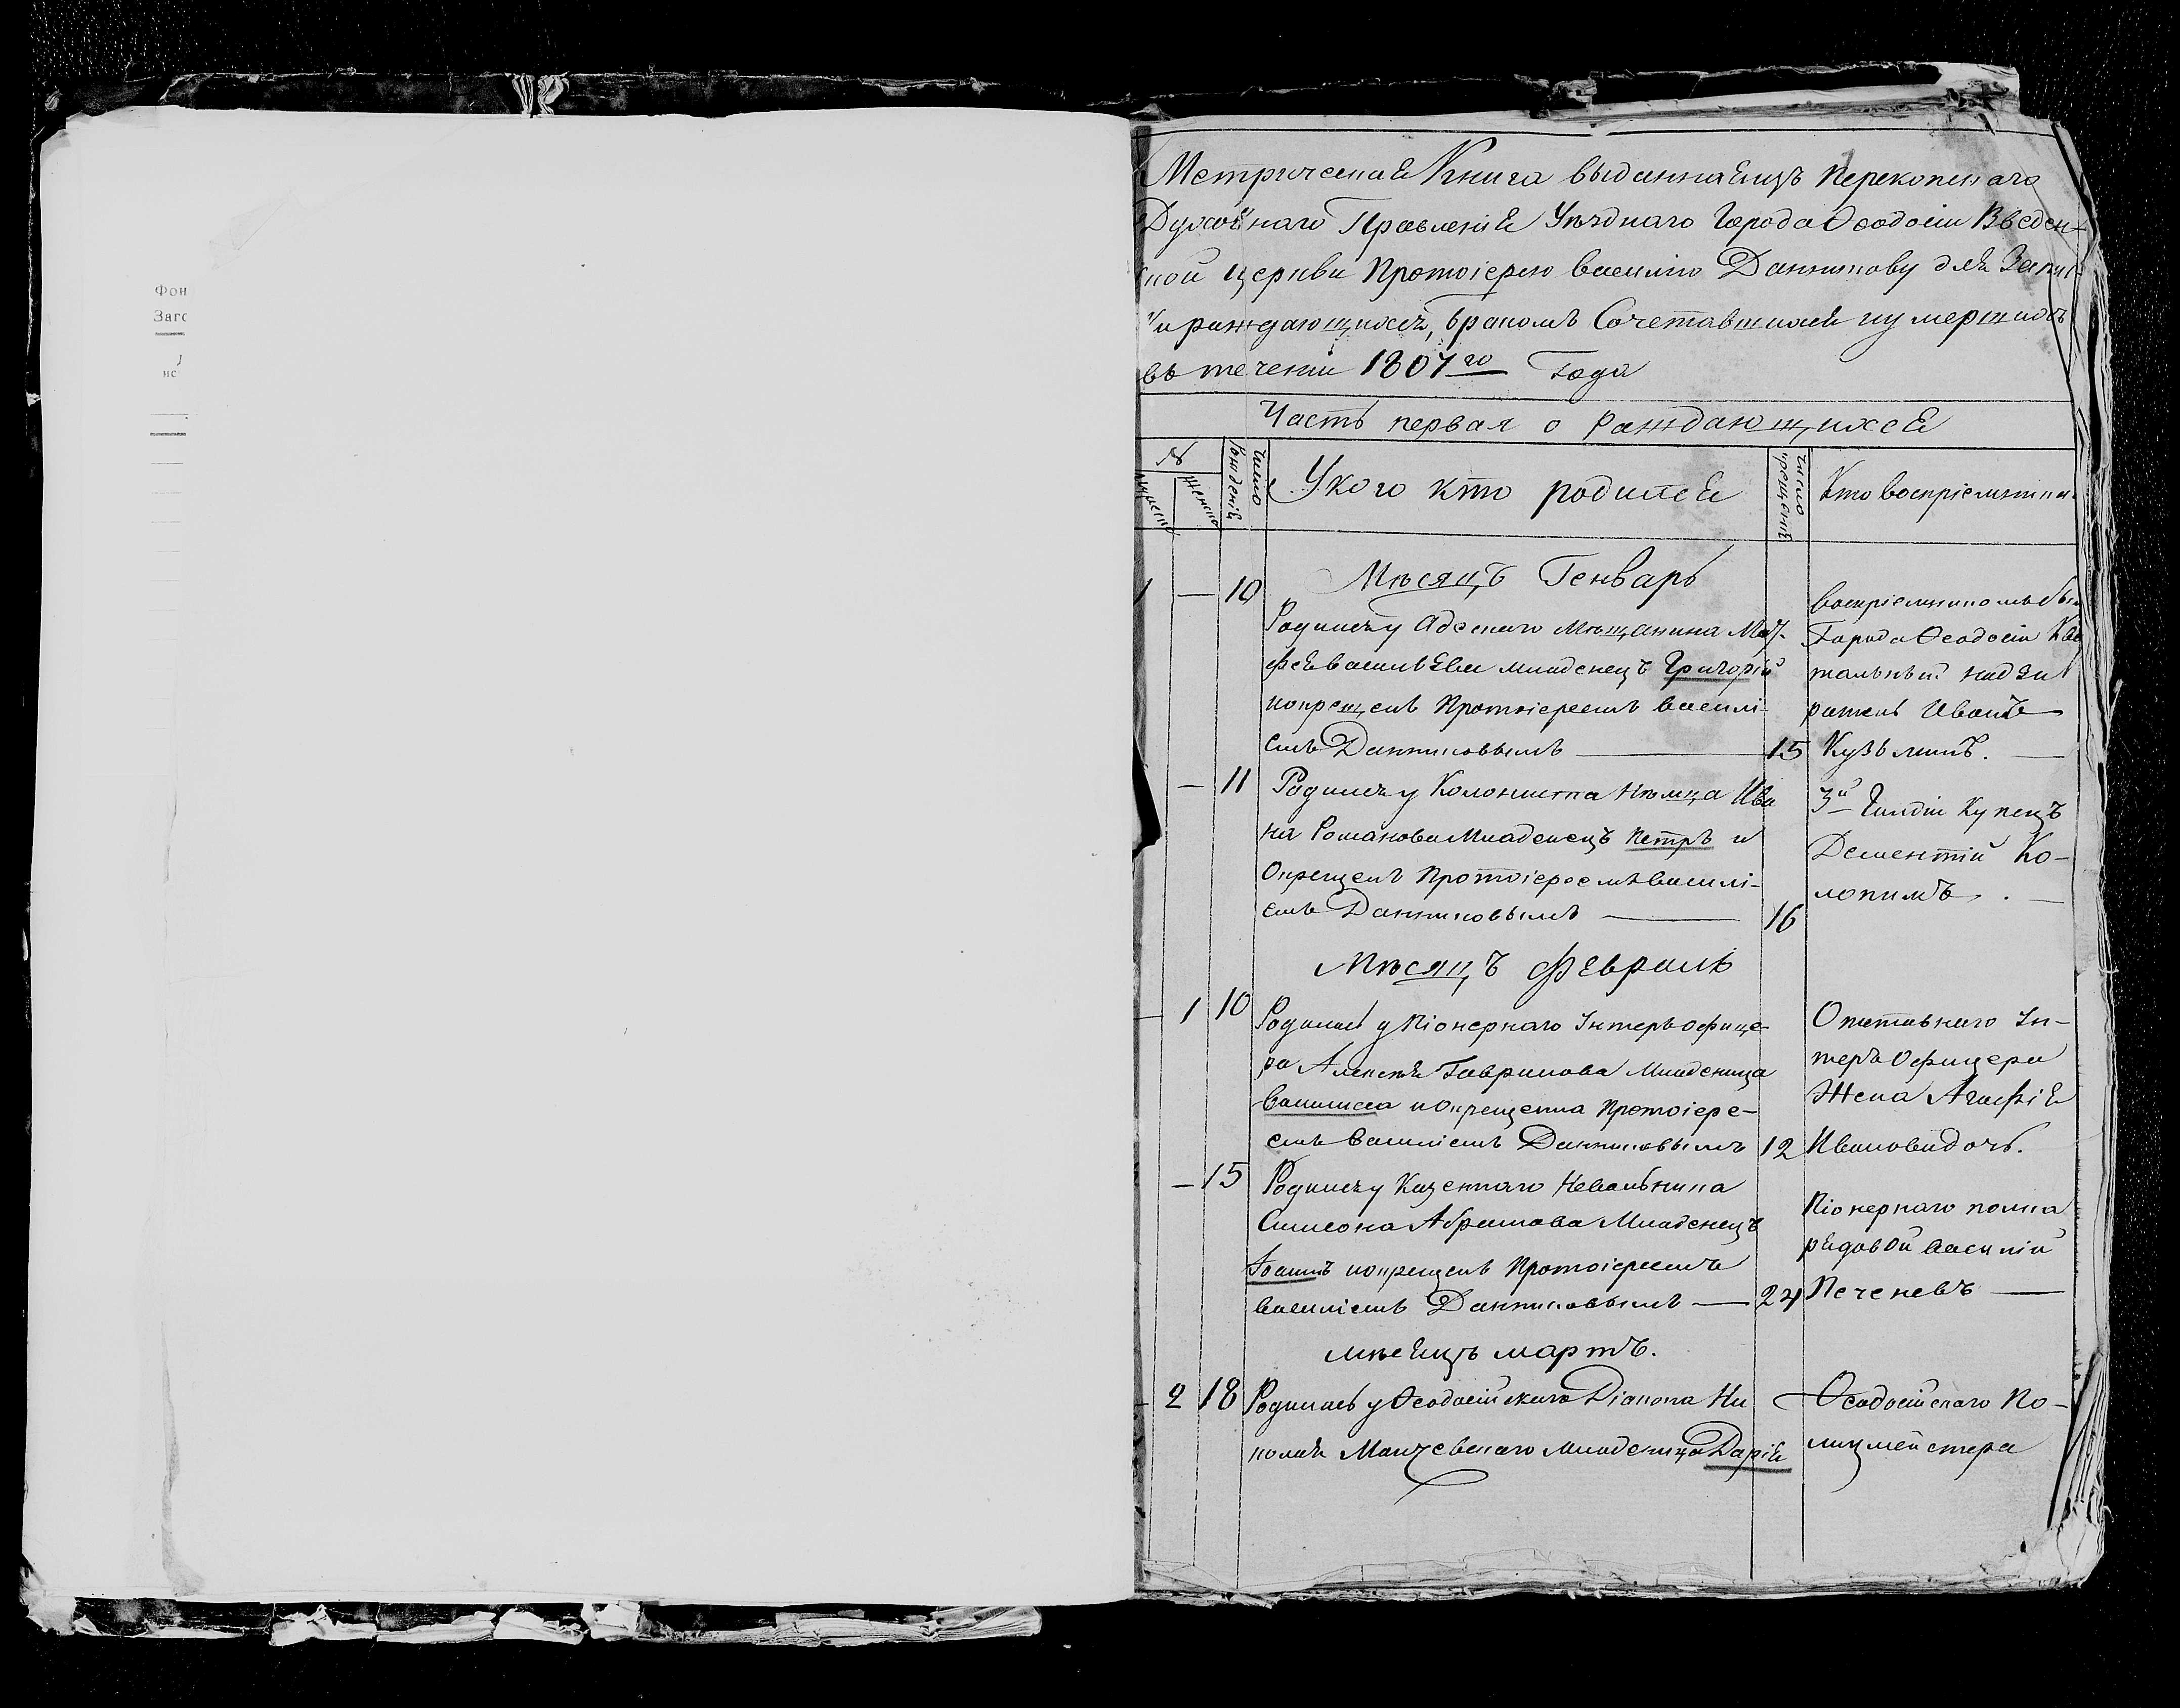 Фон
Заг
нс
Метрическая Книга выданная изъ Перекопскаго
Духовнаго Правленія Уѣзднаго Города Ѳеодосіи Введен-
ской церкви Протоіерею Василію Данилову для Запис
ки раждающихся, бракомъ Сочетавшихся и умершихъ
въ теченіи 1807го Года
Часть первая о раждающихся
№
мужеска
женска
Число рожденія
У кого кто родился
Число крещенія
Кто воспріемники
Мѣсяцъ Генварь
1 — 10
Родился у Адескаго Мѣщанина Мат-
фея Васильева младенецъ Григорій
и крещенъ Протоіереемъ Василі-
емъ Даниловымъ — 15
Воспріемникомъ бы
Города Ѳеодосіи Ква
тальный надзи
ратель Иванъ
Кузьминъ. —
— 11
Родился у Колониста Нѣмца Ива
на Романова Младенецъ Петръ и
Окрещенъ Протоіереемъ Василі-
емъ Даниловымъ — 16
3й Гилдіи Купецъ
Дементій Ко-
лопимъ. —
Мѣсяцъ Февраль
— 1 10
Родилась у Піонернаго Унтеръ офице-
ра Алексѣя Гаврилова Младеница
Василиса и Окрещена Протоіере-
емъ Василіемъ Даниловымъ 12
Отставнаго Ун-
теръ Офицера
Жена Агафія
Иванова дочь.
— 15
Родился у Казеннаго Невольника
Симеона Абрамова Младенецъ
Іоаннъ и окрещенъ Протоіереемъ
Василіемъ Даниловымъ — 24
Піонернаго полка
рядовой Василій
Печеневъ —
мѣсяцъ мартъ.
— 2 18
Родилась у Ѳеодосійскаго Діакона Ни
колая Манчевскаго младеница Дарія
Ѳеодосійскаго По-
лицмейстера